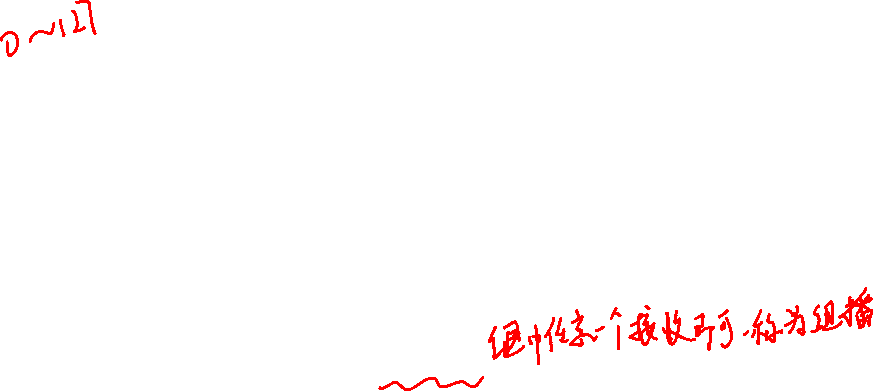 0~127
组中任意一个接收即可,称为组播